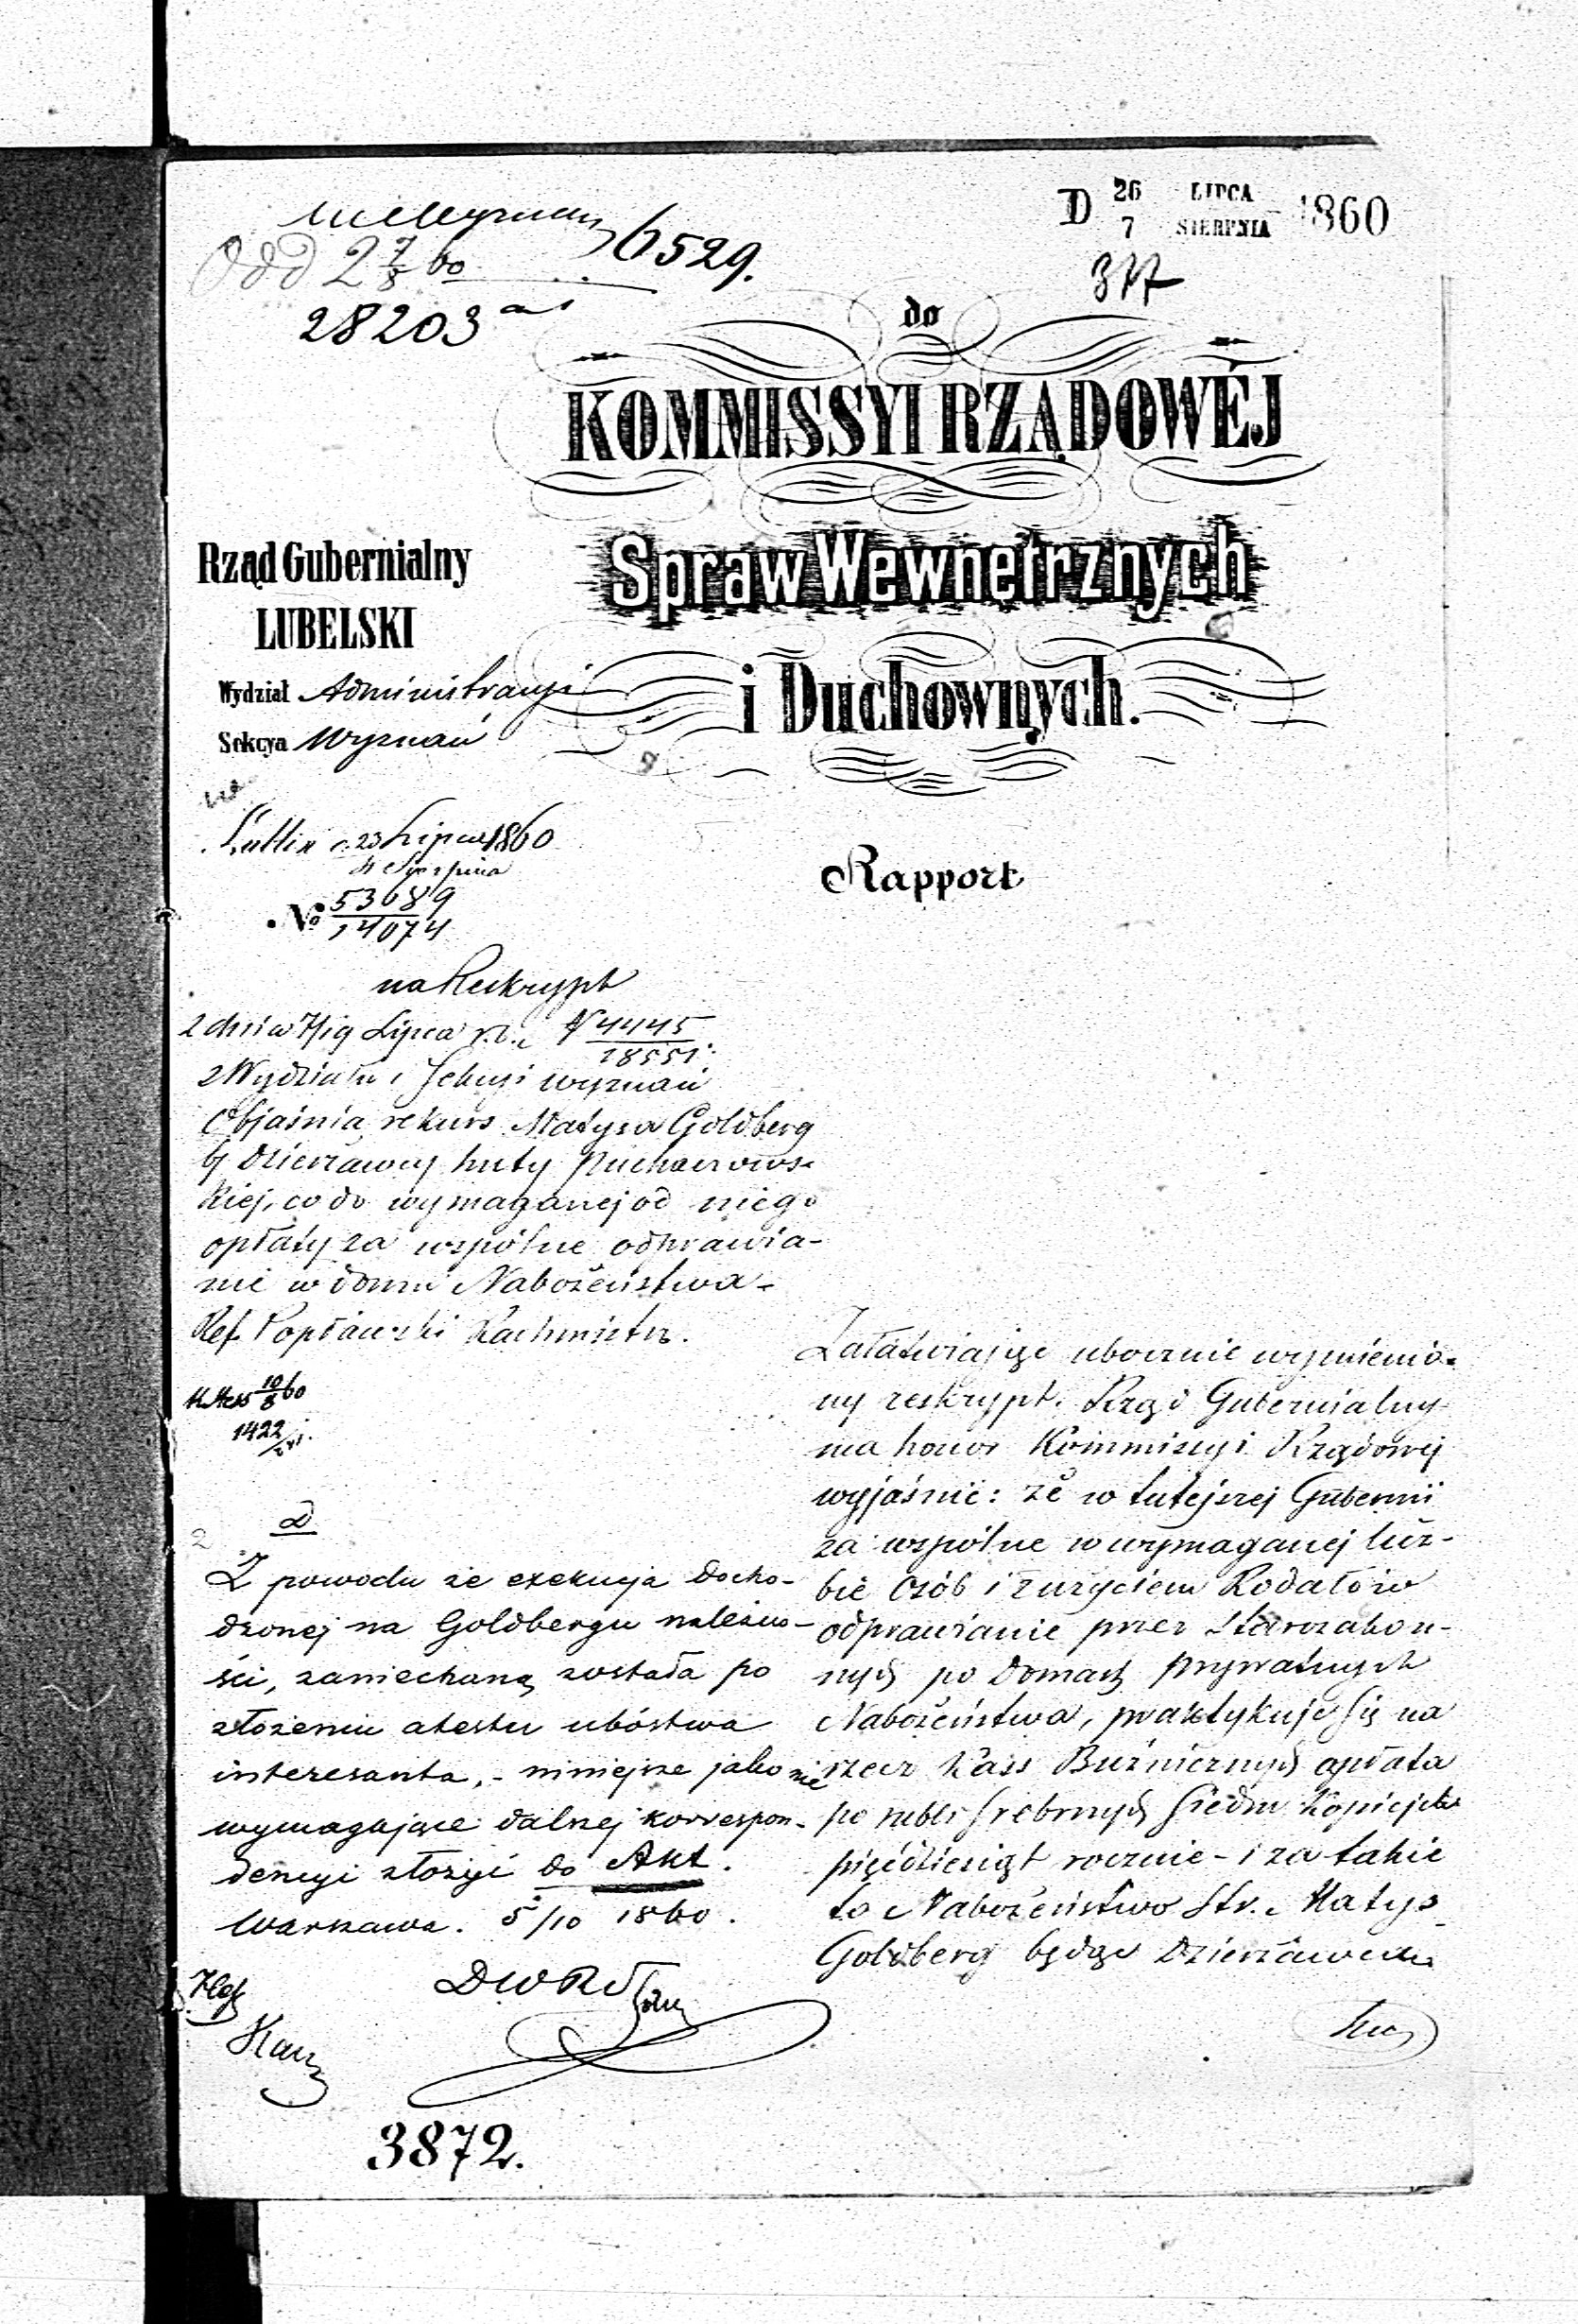 D 26 LIPCA 1860
7 SIERPNIA
377
6529.
Odd 2 7/8 60
28203
do
KOMMISSYI RZĄDOWÉJ
Spraw Wewnętrznych
i Duchownych.
Rząd Gubernialny
LUBELSKI
Wydział Administracyi
Sekcya Wyznań
Lublin d. 23 Lipca 1860
4 Sierpnia
№ 53689
14074
Rapport
na Reskrypt
z dnia 7/19 Lipca r. b. N 4445
18551.
z Wydziału i Sekcyi wyznań
Objaśnia rekurs Matysa Goldberg
b. dzierżawcy huty
kiej, co do wymaganej od niego
opłaty za wspólne odprawia-
nie w domu Nabożeństwa.
Ref. Popławski Rachmistrz.
10/8 60
1422
Załatwiając ubocznie wymienio-
ny reskrypt. Rząd Gubernialny
ma honor Kommissyi Rządowej
wyjaśnić: że w tutejszej Gubernii
za wspólne w wymaganej licz-
bie osób i z użyciem Rodałów
odprawianie przez Starozakon-
nych po domach prywatnych
Nabożeństwa, praktykuje się na
rzecz Kass Bużniczných opłata
po rubli srebrnych siedm kopiejek
pięćdziesiąt rocznie - i za takie
to Nabożeństwo Str. Matys
Goldberg będąc Dzierżawcą
ad
Z powodu że exekucja docho-
dzonej na Goldbergu należno-
ści, zaniechaną została po
złożeniu atestu ubóstwa
interesanta, - niniejsze jako nie
wymagające dalszej korrespon-
dencyi złożyć do Akt.
Warszawa. 5/10 1860.
DWR
3872.